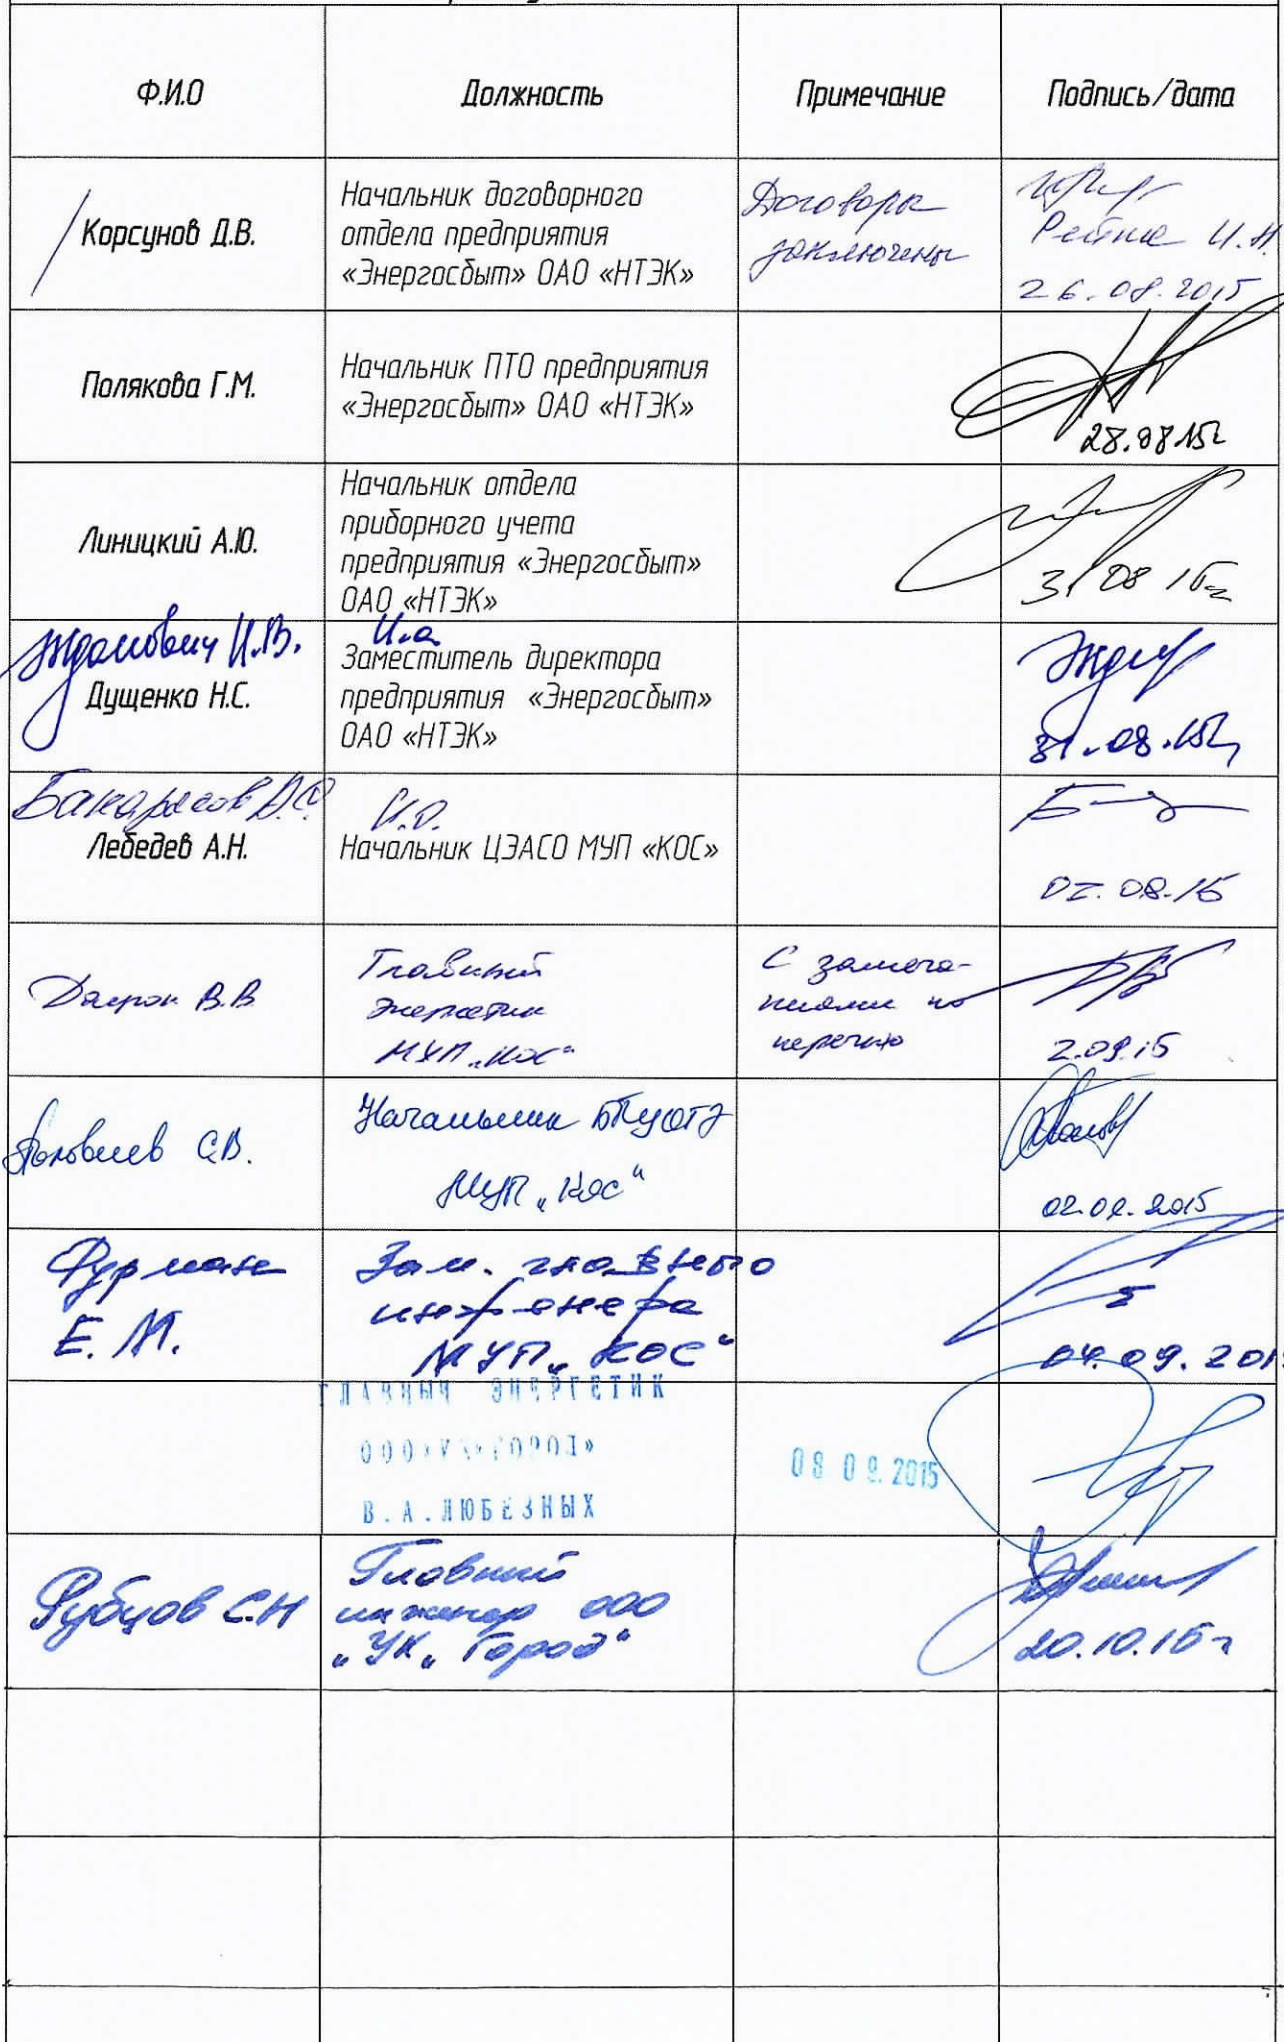 Ф.И.О
Должность
Примечание
Подпись/дата
Корсунов Д.В.
Начальник договорного
отдела предприятия
«Энергосбыт» ОАО «НТЭК»
Договоры
заключены
И.Н.
26.08.2015
Полякова Г.М.
Начальник ПТО предприятия
«Энергосбыт» ОАО «НТЭК»
28.08.15г
Линицкий А.Ю.
Начальник отдела
приборного учета
предприятия «Энергосбыт»
ОАО «НТЭК»
31 08 15г
Жданович И.В.
Дущенко Н.С.
И.о.
Заместитель директора
предприятия «Энергосбыт»
ОАО «НТЭК»
31.08.15г
Лебедев А.Н.
И.О.
Начальник ЦЭАСО МУП «КОС»
08.15
В.В
Главный
энергетик
МУП „Кос“
С замеча-
ниями по
перечню
2.09.15
С.В.
Начальник
МУП „Кос“
02.09.2015
Фурман
Е.М.
Зам. главного
инженера
МУП „КОС“
04.09.201
ГЛАВНЫЙ ЭНЕРГЕТИК
ООО«УК«ГОРОД»
В.А.ЛЮБЕЗНЫХ
08 09.2015
Рубцов С.Н
Главный
инженер ООО
„УК„ Город“
20.10.15г